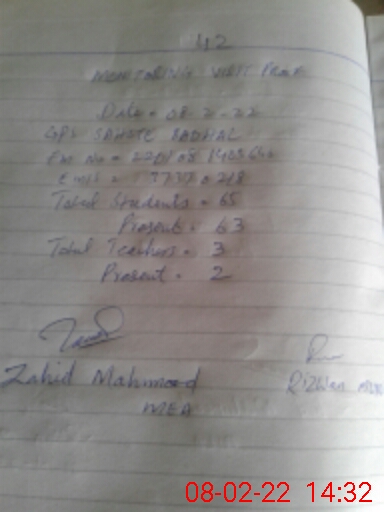 42
MONITORING VISIT PROF
Date = 08-2-22
GPS SAHOTE BADHAL
EM No =
EMIS =
Total Students = 65
Prosent = 63
Total Teachers = 3
Prosent = 2
Zahid Mahmood
MEA
Rizwan
08-02-22 14:32